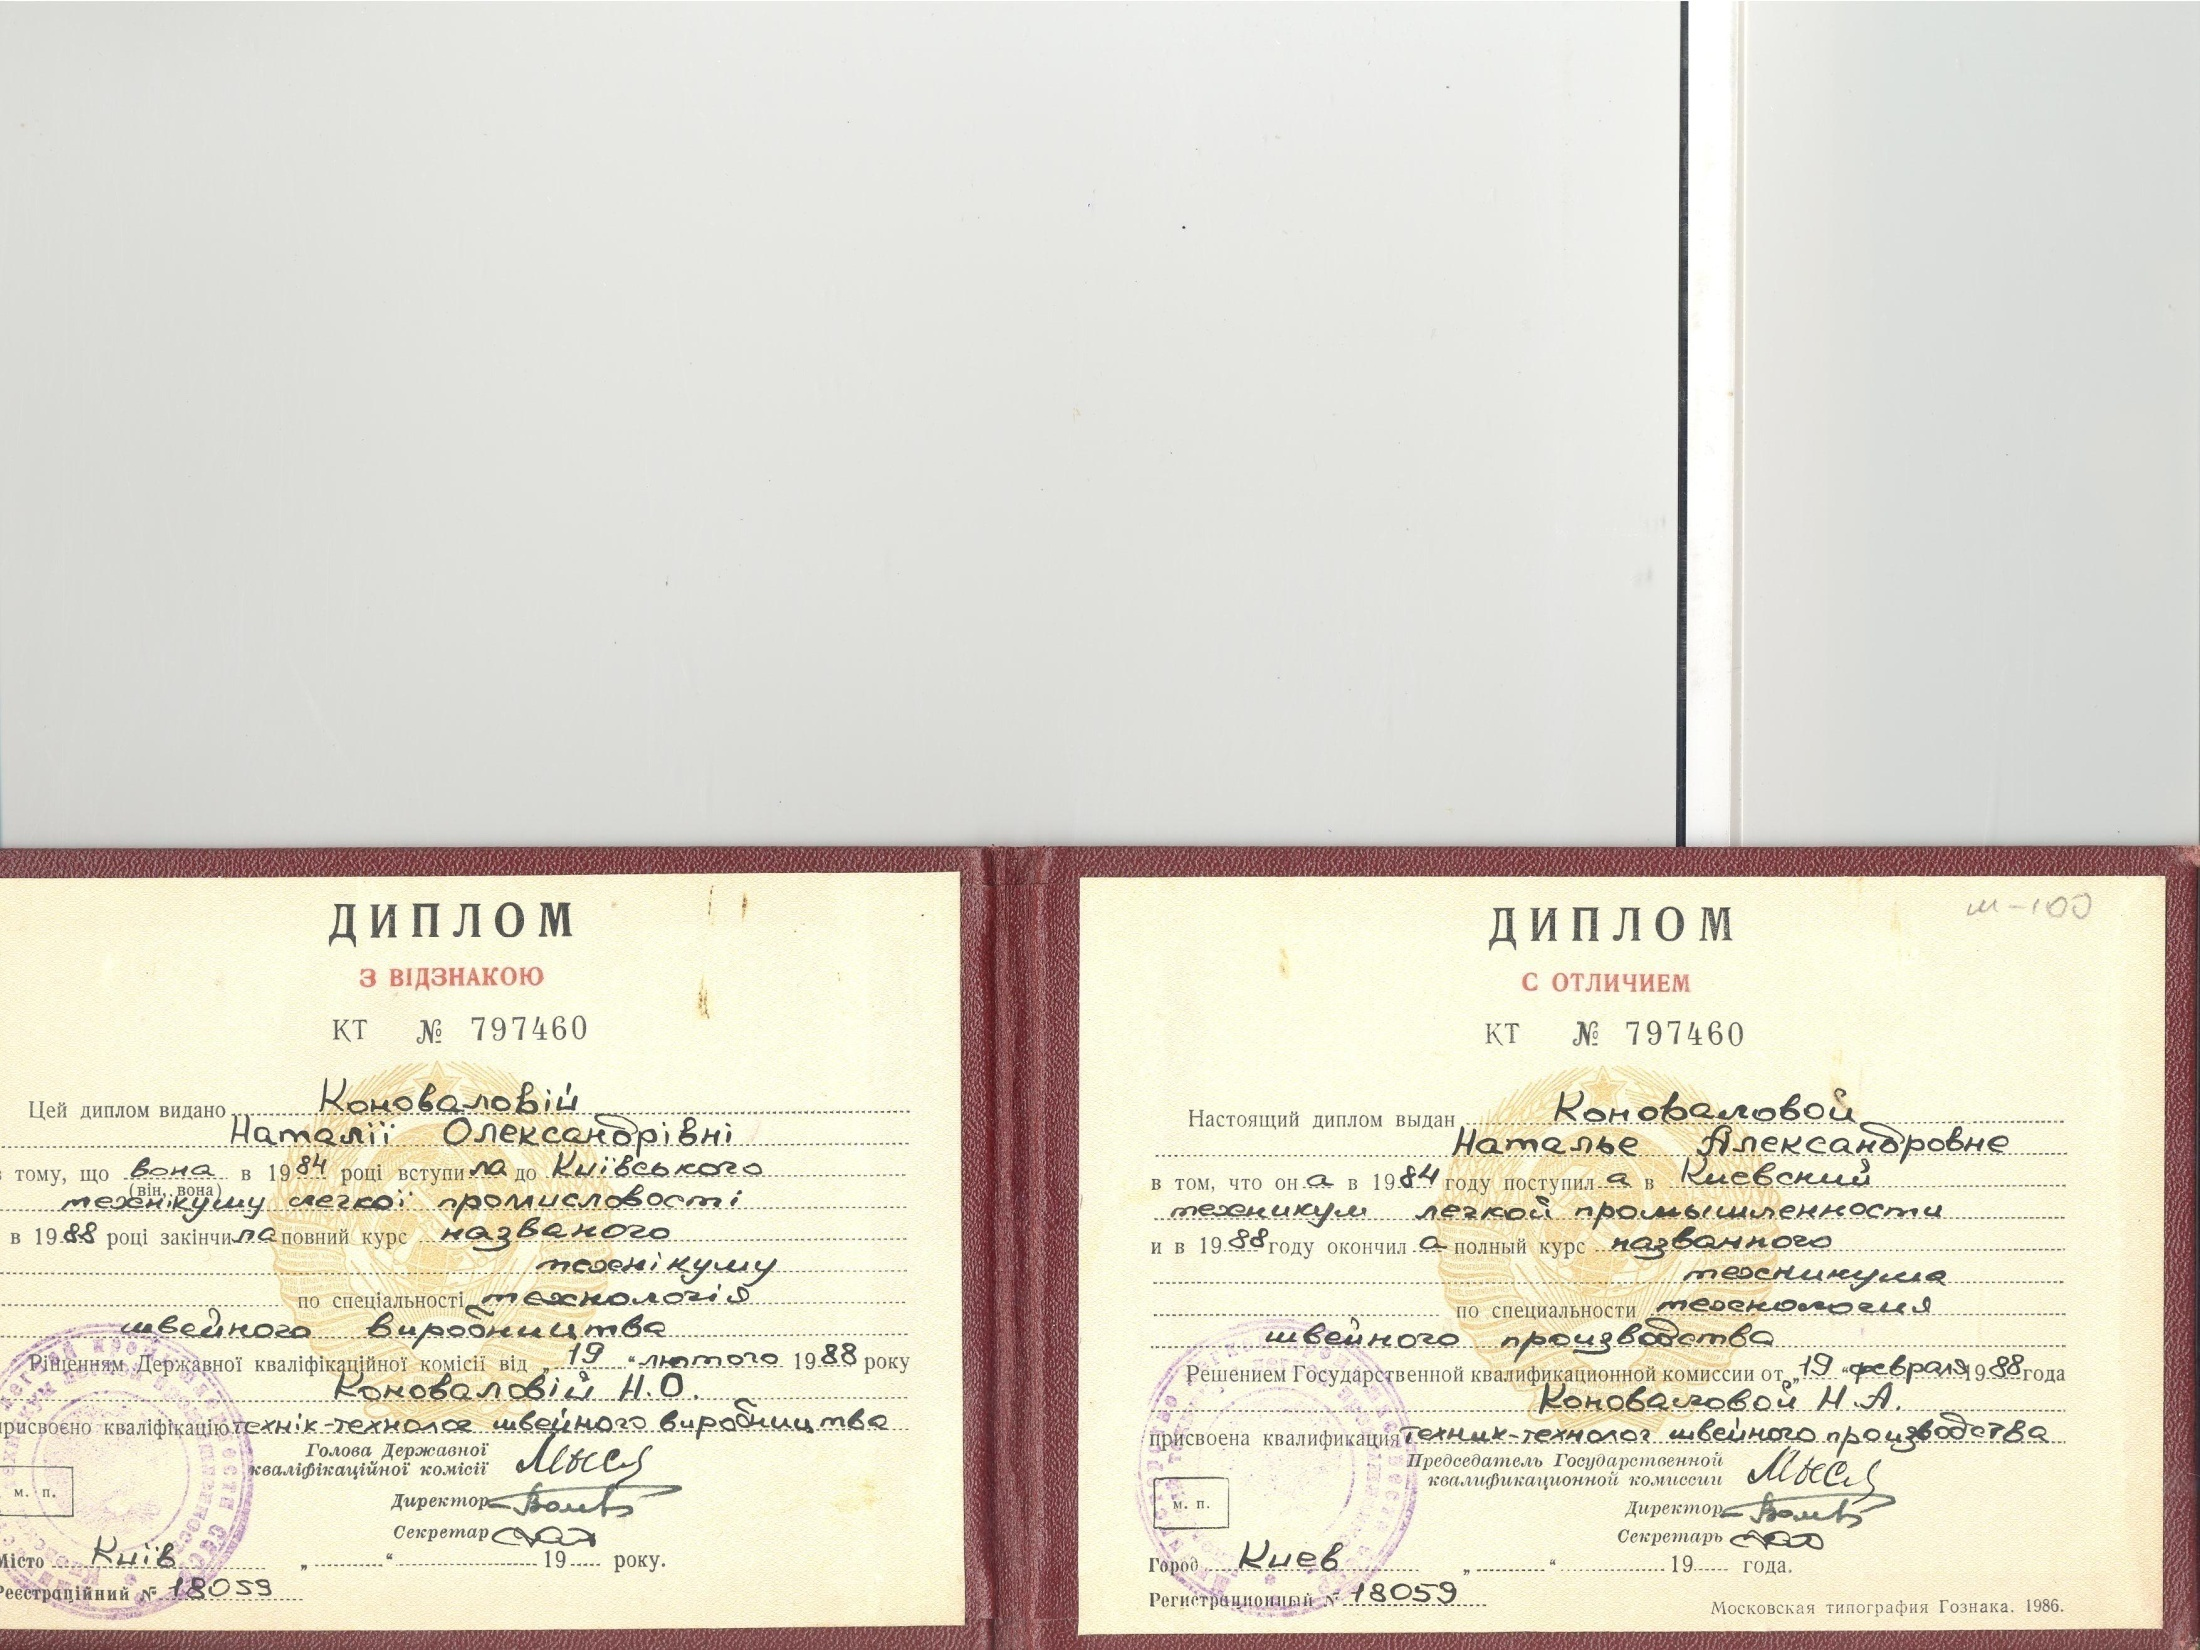 ДИПЛОМ
З ВІДЗНАКОЮ
КТ № 797460
Цей диплом видано Коноваловій
Наталії Олександрівні
в тому, що вона в 1984 році вступила до Київського
(він, вона)
технікуму легкої промисловості
в 1988 році закінчила повний курс названого
технікуму
по спеціальності технологія
швейного виробництва
Рішенням Державної кваліфікаційної комісії від „19“ лютого 1988 року
Коноваловій Н.О.
присвоєно кваліфікацію технік-технолог швейного виробництва
Голова Державної
кваліфікаційної комісії
Директор
Секретар
М. П.
Місто Київ „ “ 19 року.
Реєстраційний № 18059
ДИПЛОМ
С ОТЛИЧИЕМ
КТ № 797460
Настоящий диплом выдан Коноваловой
Наталье Александровне
в том, что она в 1984 году поступила в Киевский
техникум легкой промышленности
и в 1988 году окончила полный курс названного
техникума
по специальности технология
швейного производства
Решением Государственной квалификационной комиссии от „19“ февраля 1988 года
Коноваловой Н.А.
присвоена квалификация техник-технолог швейного производства
Председатель Государственной
квалификационной комиссии
Директор
Секретарь
М. П.
Город Киев „ “ 19 года.
Регистрационный № 18059
Московская типография Гознака. 1986.